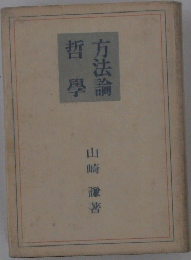 方法論
哲學
山崎謙著